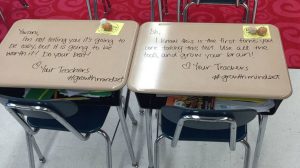 I'm not telling you it's going to
be easy, but it is going to be
worth it! Do your best!
♡ Your Teachers
#growthmindset
I know this is the first time you
are taking this test. Use all the
tools and grow your brain!
♡ Your Teachers
#growthmindset